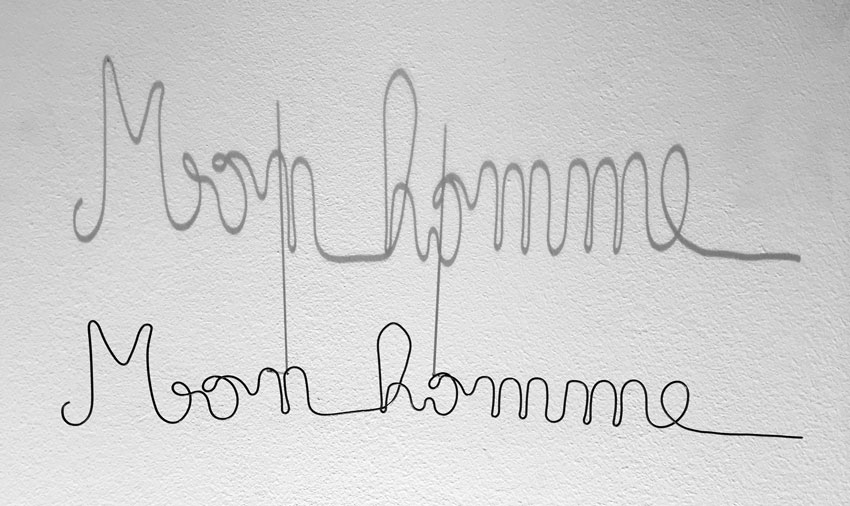 Mon homme
Mon homme